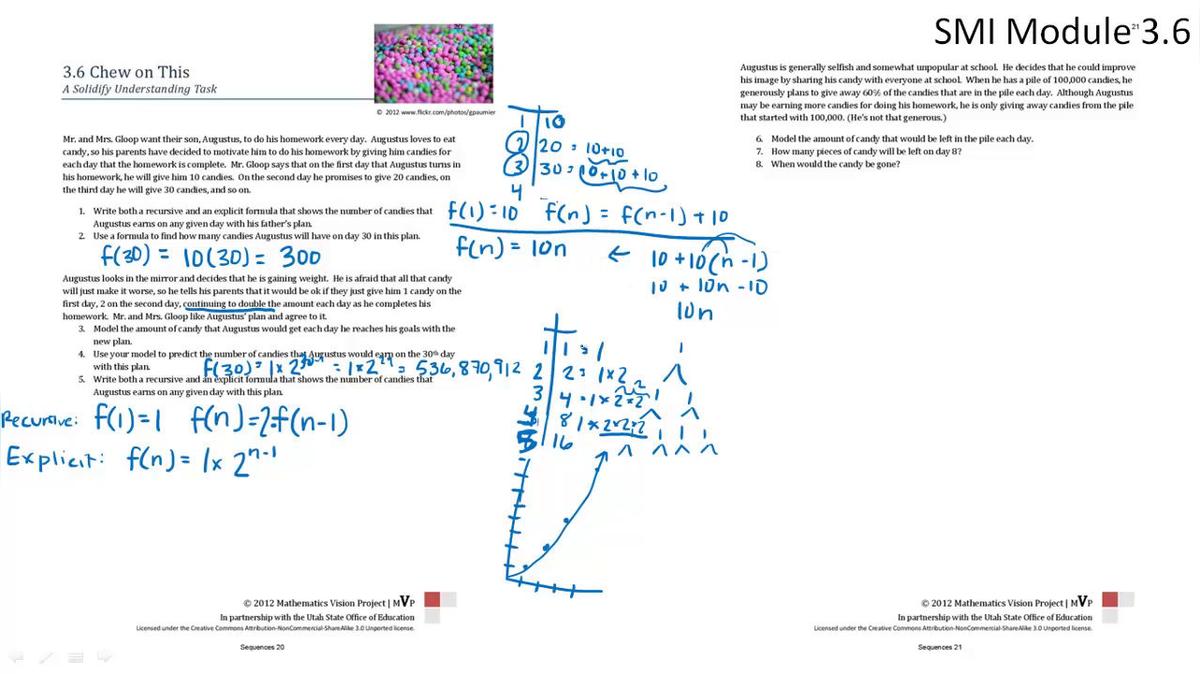 SMI Module 3.6
20
21
3.6 Chew on This
A Solidify Understanding Task
© 2012 www.flickr.com/photos/gpaumier
Mr. and Mrs. Gloop want their son, Augustus, to do his homework every day. Augustus loves to eat
candy, so his parents have decided to motivate him to do his homework by giving him candies for
each day that the homework is complete. Mr. Gloop says that on the first day that Augustus turns in
his homework, he will give him 10 candies. On the second day he promises to give 20 candies, on
the third day he will give 30 candies, and so on.
1. Write both a recursive and an explicit formula that shows the number of candies that
Augustus earns on any given day with his father's plan.
2. Use a formula to find how many candies Augustus will have on day 30 in this plan.
f(30) = 10(30) = 300
Augustus looks in the mirror and decides that he is gaining weight. He is afraid that all that candy
will just make it worse, so he tells his parents that it would be ok if they just give him 1 candy on the
first day, 2 on the second day, continuing to double the amount each day as he completes his
homework. Mr. and Mrs. Gloop like Augustus' plan and agree to it.
3. Model the amount of candy that Augustus would get each day he reaches his goals with the
new plan.
4. Use your model to predict the number of candies that Augustus would earn on the 30th day
with this plan.
f(30) = 1x2^30-1 = 1x2^29 = 536,870,912
5. Write both a recursive and an explicit formula that shows the number of candies that
Augustus earns on any given day with this plan.
Recursive: f(1)=1 f(n)=2·f(n-1)
Explicit: f(n) = 1x 2^n-1
1 10
2 20 = 10+10
3 30 = 10+10+10
4
f(1)=10 f(n) = f(n-1)+10
f(n) = 10n ← 10+10(n-1)
10 + 10n -10
10n
1 1 = 1
2 2 = 1x2
3 4 = 1x2x2
4 8 1x2x2x2
5 16
© 2012 Mathematics Vision Project | MVP
In partnership with the Utah State Office of Education
Licensed under the Creative Commons Attribution-NonCommercial-ShareAlike 3.0 Unported license.
Sequences 20
Augustus is generally selfish and somewhat unpopular at school. He decides that he could improve
his image by sharing his candy with everyone at school. When he has a pile of 100,000 candies, he
generously plans to give away 60% of the candies that are in the pile each day. Although Augustus
may be earning more candies for doing his homework, he is only giving away candies from the pile
that started with 100,000. (He's not that generous.)
6. Model the amount of candy that would be left in the pile each day.
7. How many pieces of candy will be left on day 8?
8. When would the candy be gone?
© 2012 Mathematics Vision Project | MVP
In partnership with the Utah State Office of Education
Licensed under the Creative Commons Attribution-NonCommercial-ShareAlike 3.0 Unported license.
Sequences 21